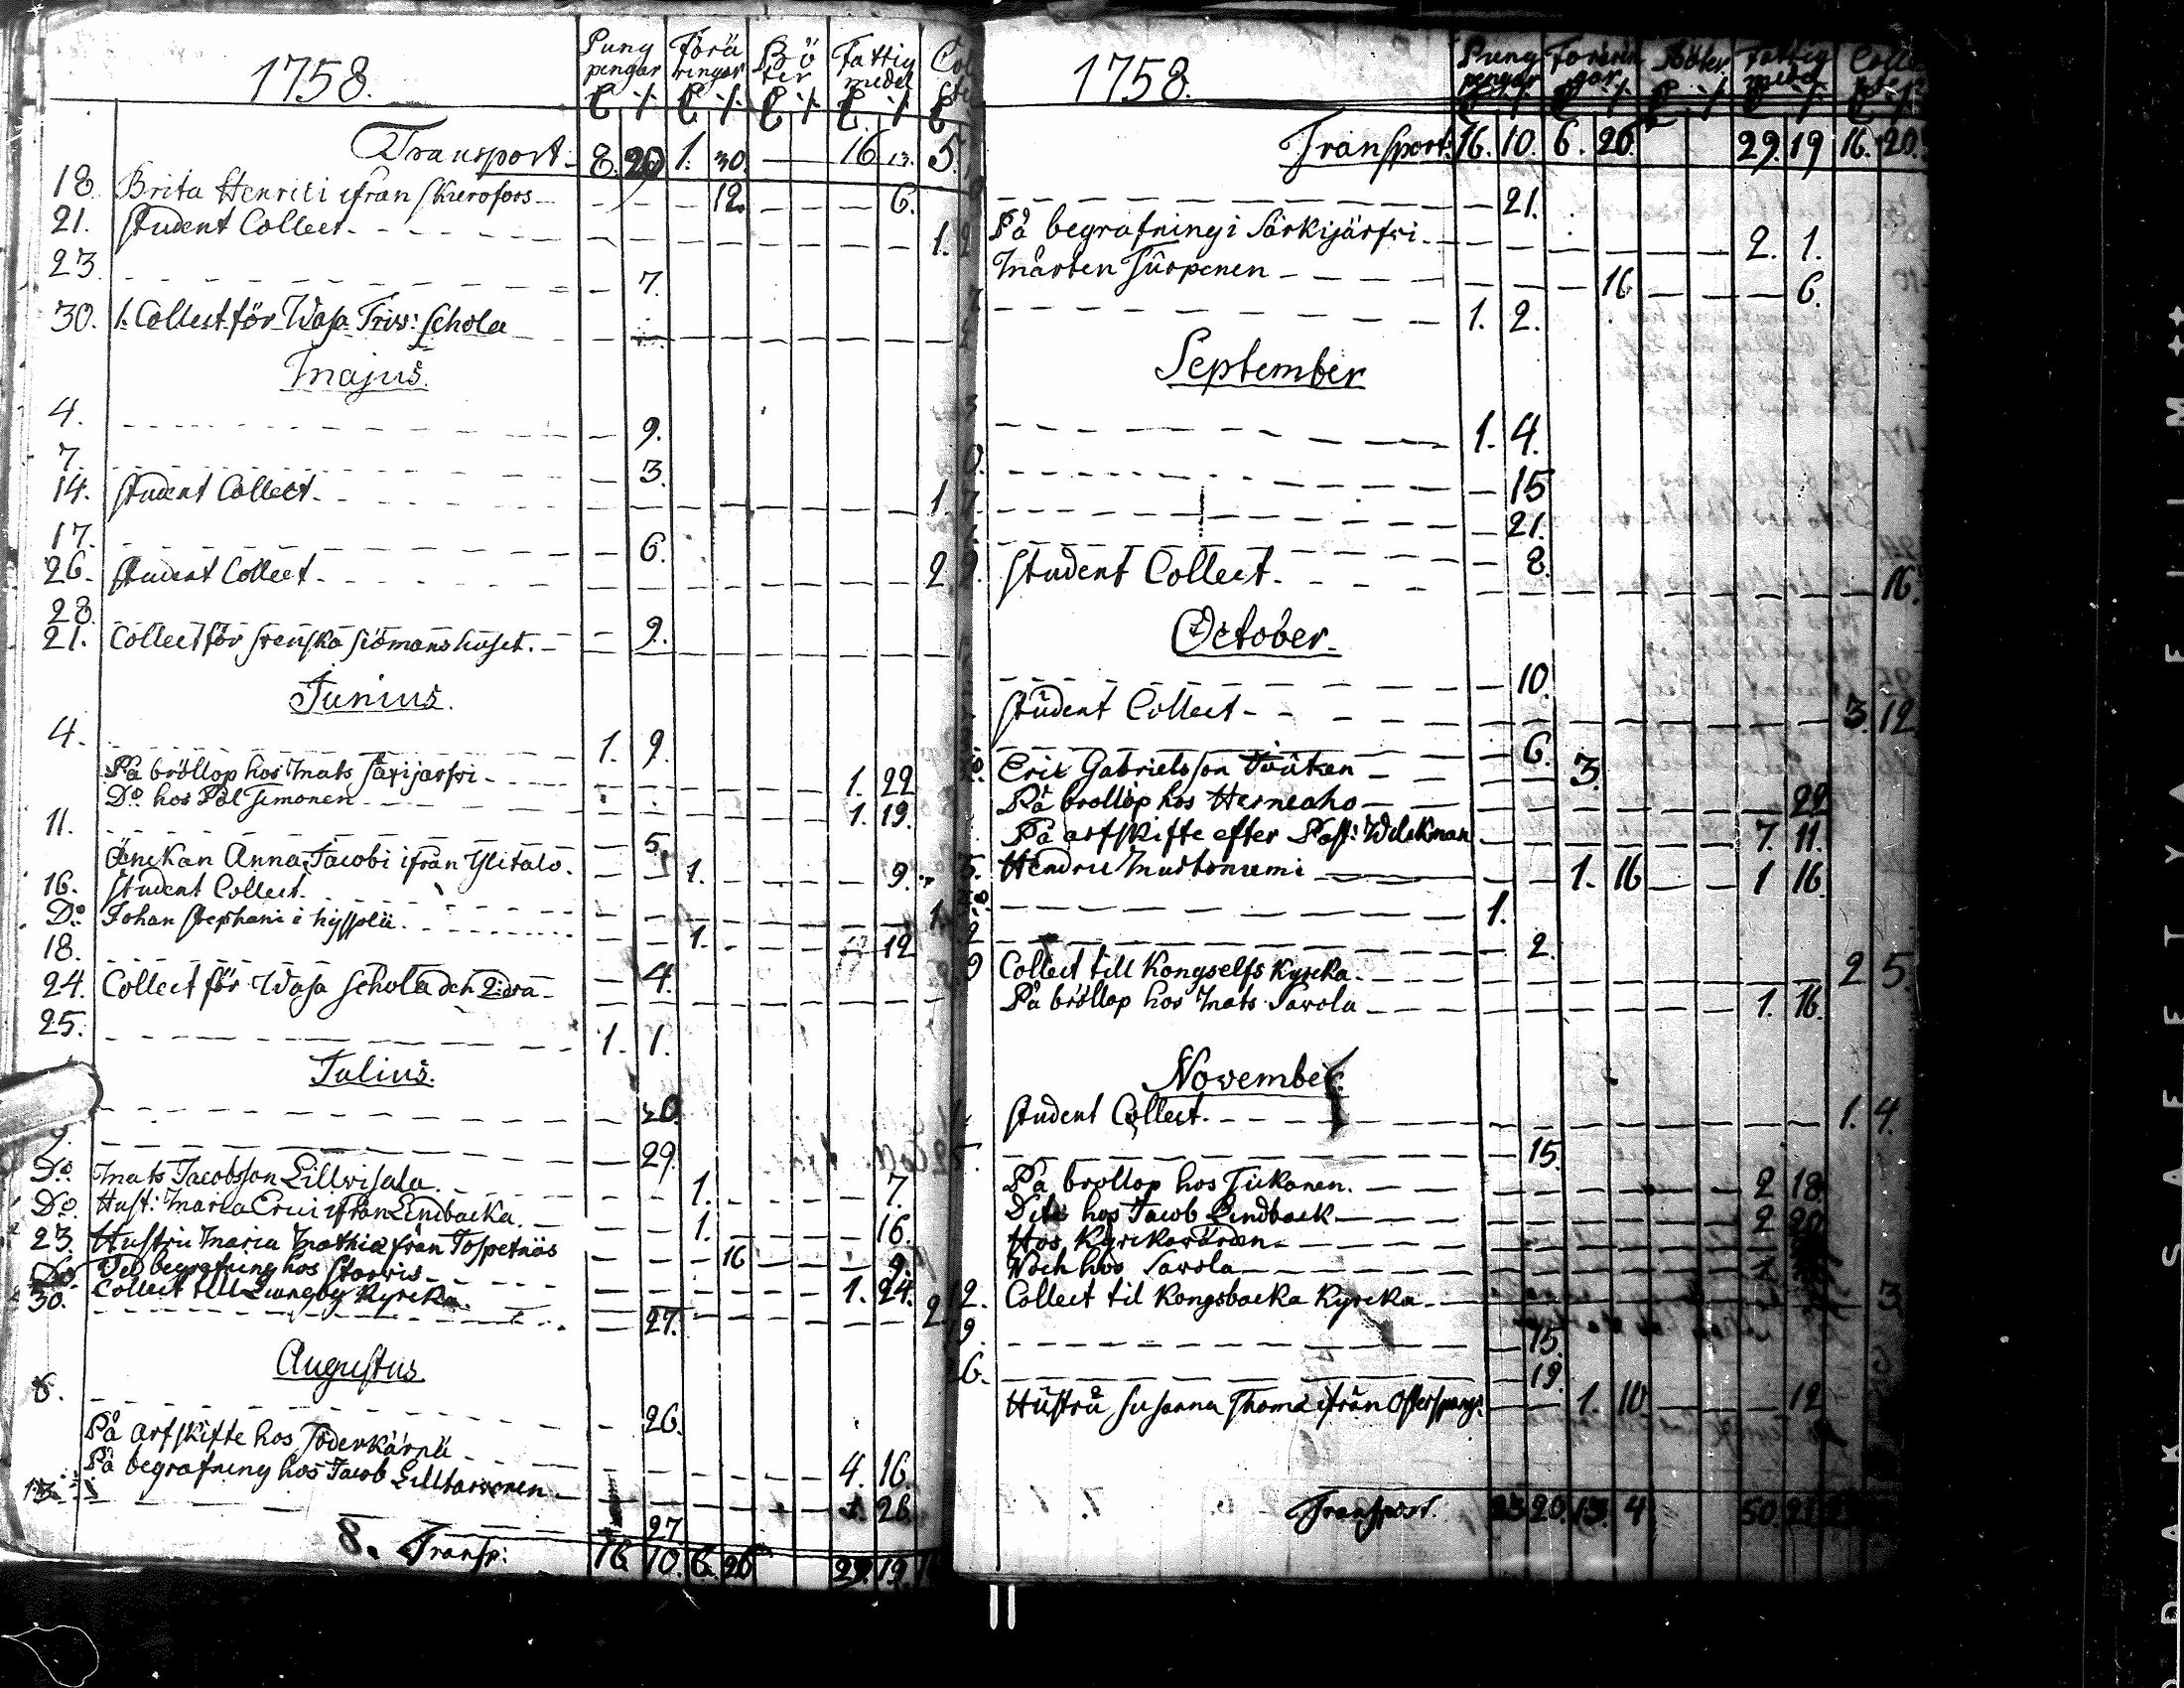 1758.
Pung pengar Förä ringar Bö ter Fattig medel
Transport 8. 20 1. 30. 16 13. 5.
18. Brita Henrici ifrån 12. 6.
21. Student Collect 1.
23. 7.
30. 1. Collect för Wasa Triv: Schola
Majus.
4. 9.
7. 3.
14. Student Collect 1.
17. 6.
26. Student Collect 2
28. 9.
21. Collect för Svenska Siömanshuset.
Junius.
4. 1. 9.
På bröllop hos Mats 1. 22
Do hos Pål Simonen 1. 19.
11. 5.
Änckan Anna Jacobi ifrån Ylitalo. 1. 9.
16. Student Collect. 1.
Do Johan Stephani i 1. 12
18. 4.
24. Collect för Wasa Schola den 2:dra
25. 1. 1.
Julius.
20.
9. 29.
Do Mats Jacobsson Lillvisala 1. 7.
Do Hust: Maria Erici ifrån Lindbacka. 1. 16.
23. Hustru Maria Mathiæ från 16 9.
Do Ved begrafning hos 1. 24.
30. Collect till Liungby Kyrcka. 2
27.
Augustus
6. 26.
På arfskifte hos Söderkärnä 4. 16.
På begrafning hos Jacob 1. 28.
13. 27
8. Transp: 16 10. 6. 20 29. 19.
1758.
Pung pengar Förärin gar Böter Fattig medel
Transport: 16. 10. 6. 20. 29. 19 16. 20.
21.
På begrafning i Särkijärfvi 2. 1.
Mårten 16 6.
1. 2.
September
1. 4.
15
21.
8.
Student Collect. 16.
October.
10.
Student Collect 3. 12
6.
Eric Gabrielsson 3.
På bröllop hos Herneaho 22
På arfskifte efter Past: 7. 11.
Hendric Murtoniemi 1. 16 1 16.
1.
2.
Collect till Kongselfs Kyrcka. 2 5.
På bröllop hos Mats Savola 1. 16.
November.
Student Collect. 1. 4.
15.
På bröllop hos Tickanen. 2 18.
Dito hos Jacob Lindback 2 20
Hos Kyrckovärden
Noch hos Savola
12. Collect til Kongsbacka Kyrcka 3
19. 15.
26. 19.
Hustru Susanna Thomæ ifrån 1. 10 12
Transport. 23 20. 13. 4 50. 21